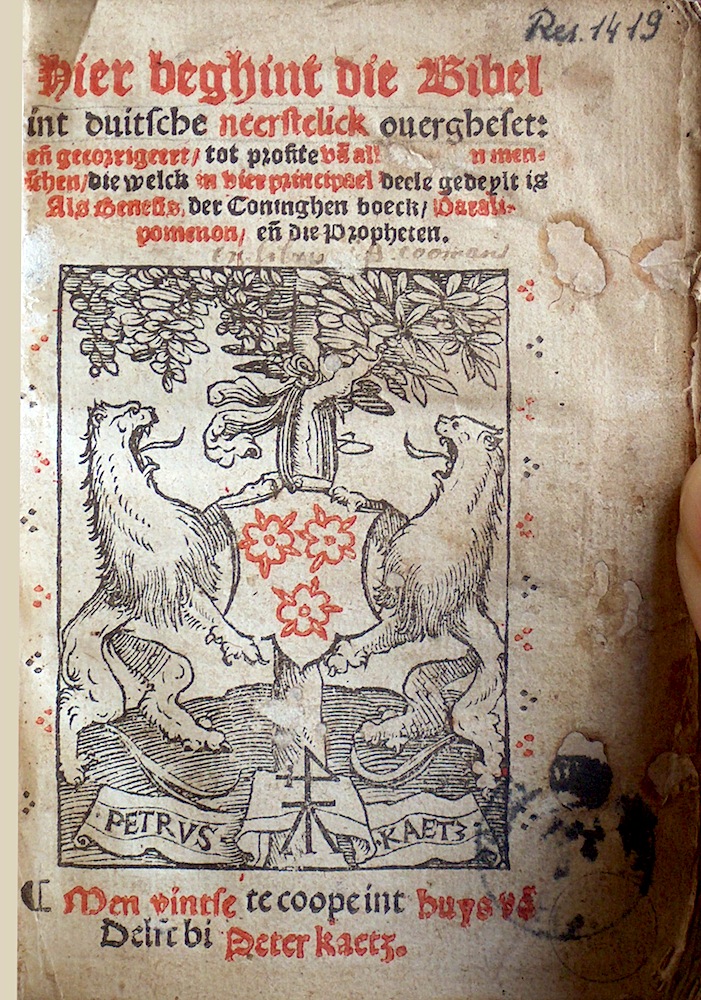 Res. 1419
Hier beghint die Bibel
int duitsche neerstelick ouergheset:
en̄ gecorrigeert/ tot profite vā all n men-
schen/die welck in vier principael deele gedeylt is
Als Genesis, der Coninghen boeck/ Parali-
pomenon/ en̄ die Propheten.
Ex libris A. Coomans
PETRVS KAETZ
Men vintse te coope int huys vā
Delft bi Peter kaetz.